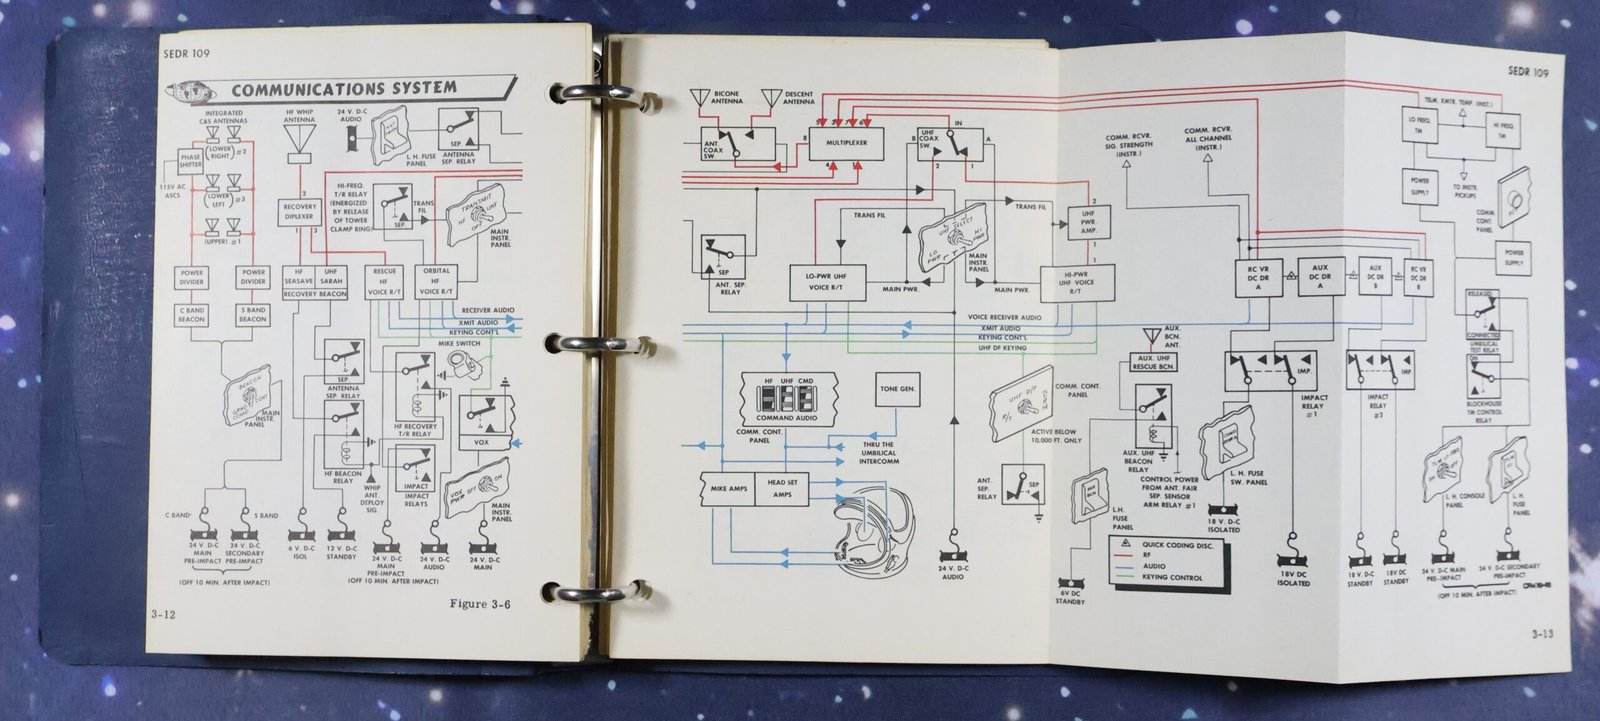 SEDR 109
COMMUNICATIONS SYSTEM
INTEGRATED
C&S ANTENNAS
HF WHIP
ANTENNA
24 V. D-C
AUDIO
L. H. FUSE
PANEL
ANTENNA
SEP. RELAY
PHASE
SHIFTER
(LOWER
RIGHT) #2
115V AC
ASCS
(LOWER
LEFT) #3
(UPPER) #1
RECOVERY
DIPLEXER
2
1
3
HI-FREQ.
T/R RELAY
(ENERGIZED
BY RELEASE
OF TOWER
CLAMP RING)
SEP.
TRANS
FIL
TRANSMIT
HF
UHF
OFF
MAIN
INSTR.
PANEL
POWER
DIVIDER
POWER
DIVIDER
HF
SEASAVE
UHF
SARAH
RECOVERY BEACON
RESCUE
HF
VOICE R/T
ORBITAL
HF
VOICE R/T
C BAND
BEACON
S BAND
BEACON
RECEIVER AUDIO
XMIT AUDIO
KEYING CONT'L
MIKE SWITCH
BEACON
GRND
COMD
CONT
MAIN
INSTR.
PANEL
SEP.
ANTENNA
SEP. RELAY
HF RECOVERY
T/R RELAY
VOX
HF BEACON
RELAY
IMPACT
IMPACT
RELAYS
WHIP
ANT.
DEPLOY
SIG.
VOX
PWR
OFF
ON
MAIN
INSTR.
PANEL
C BAND
S BAND
24 V. D-C
MAIN
PRE-IMPACT
24 V. D-C
SECONDARY
PRE-IMPACT
(OFF 10 MIN. AFTER IMPACT)
6 V. D-C
ISOL
12 V. D-C
STANDBY
24 V. D-C
MAIN
PRE-IMPACT
(OFF 10 MIN. AFTER IMPACT)
24 V. D-C
AUDIO
24 V. D-C
MAIN
Figure 3-6
3-12
SEDR 109
BICONE
ANTENNA
DESCENT
ANTENNA
ANT.
COAX
SW
MULTIPLEXER
8
4
UHF
COAX
SW.
IN
B
A
2
1
TRANS FIL
TRANS FIL
SEP
ANT. SEP.
RELAY
LO-PWR UHF
VOICE R/T
MAIN PWR.
UHF SELECT
LO
PWR
HI
PWR
MAIN
INSTR.
PANEL
MAIN PWR.
2
UHF
PWR.
AMP.
1
HI-PWR
UHF VOICE
R/T
VOICE RECEIVER AUDIO
XMIT AUDIO
KEYING CONT'L
UHF DF KEYING
HF UHF CMD
COMMAND AUDIO
COMM. CONT.
PANEL
TONE GEN.
THRU THE
UMBILICAL
INTERCOMM
MIKE AMPS
HEAD SET
AMPS
24 V. D-C
AUDIO
UHF D/F
R/T
COMM. CONT.
PANEL
ACTIVE BELOW
10,000 FT. ONLY
ANT.
SEP.
RELAY
SEP
COMM. RCVR.
SIG. STRENGTH
(INSTR.)
COMM. RCVR.
ALL CHANNEL
(INSTR.)
AUX.
BCN.
ANT.
AUX. UHF
RESCUE BCN.
AUX. UHF
BEACON
RELAY
CONTROL POWER
FROM ANT. FAIR
SEP. SENSOR
ARM RELAY #1
AUX
BCN
L.H.
FUSE
PANEL
6V DC
STANDBY
RC VR
DC DR
A
AUX
DC DR
A
AUX
DC DR
B
RC VR
DC DR
B
IMP.
IMPACT
RELAY
#1
IMP
IMPACT
RELAY
#2
L. H. FUSE
SW. PANEL
18 V. D-C
ISOLATED
QUICK CODING DISC.
RF
AUDIO
KEYING CONTROL
18V DC
ISOLATED
18 V. D-C
STANDBY
18V DC
STANDBY
TELM. XMTR. TEMP. (INST.)
LO FREQ.
TM
HI FREQ.
TM
TO INSTR.
PICKUPS
POWER
SUPPLY
COMM.
CONT.
PANEL
POWER
SUPPLY
RELEASED
CONNECTED
UMBILICAL
TEST RELAY
ON
BLOCKHOUSE
TM CONTROL
RELAY
TLM LO FREQ
L. H. CONSOLE
PANEL
L. H.
FUSE
PANEL
24 V. D-C MAIN
PRE-IMPACT
24 V. D-C SECONDARY
PRE-IMPACT
(OFF 10 MIN. AFTER IMPACT)
3-13